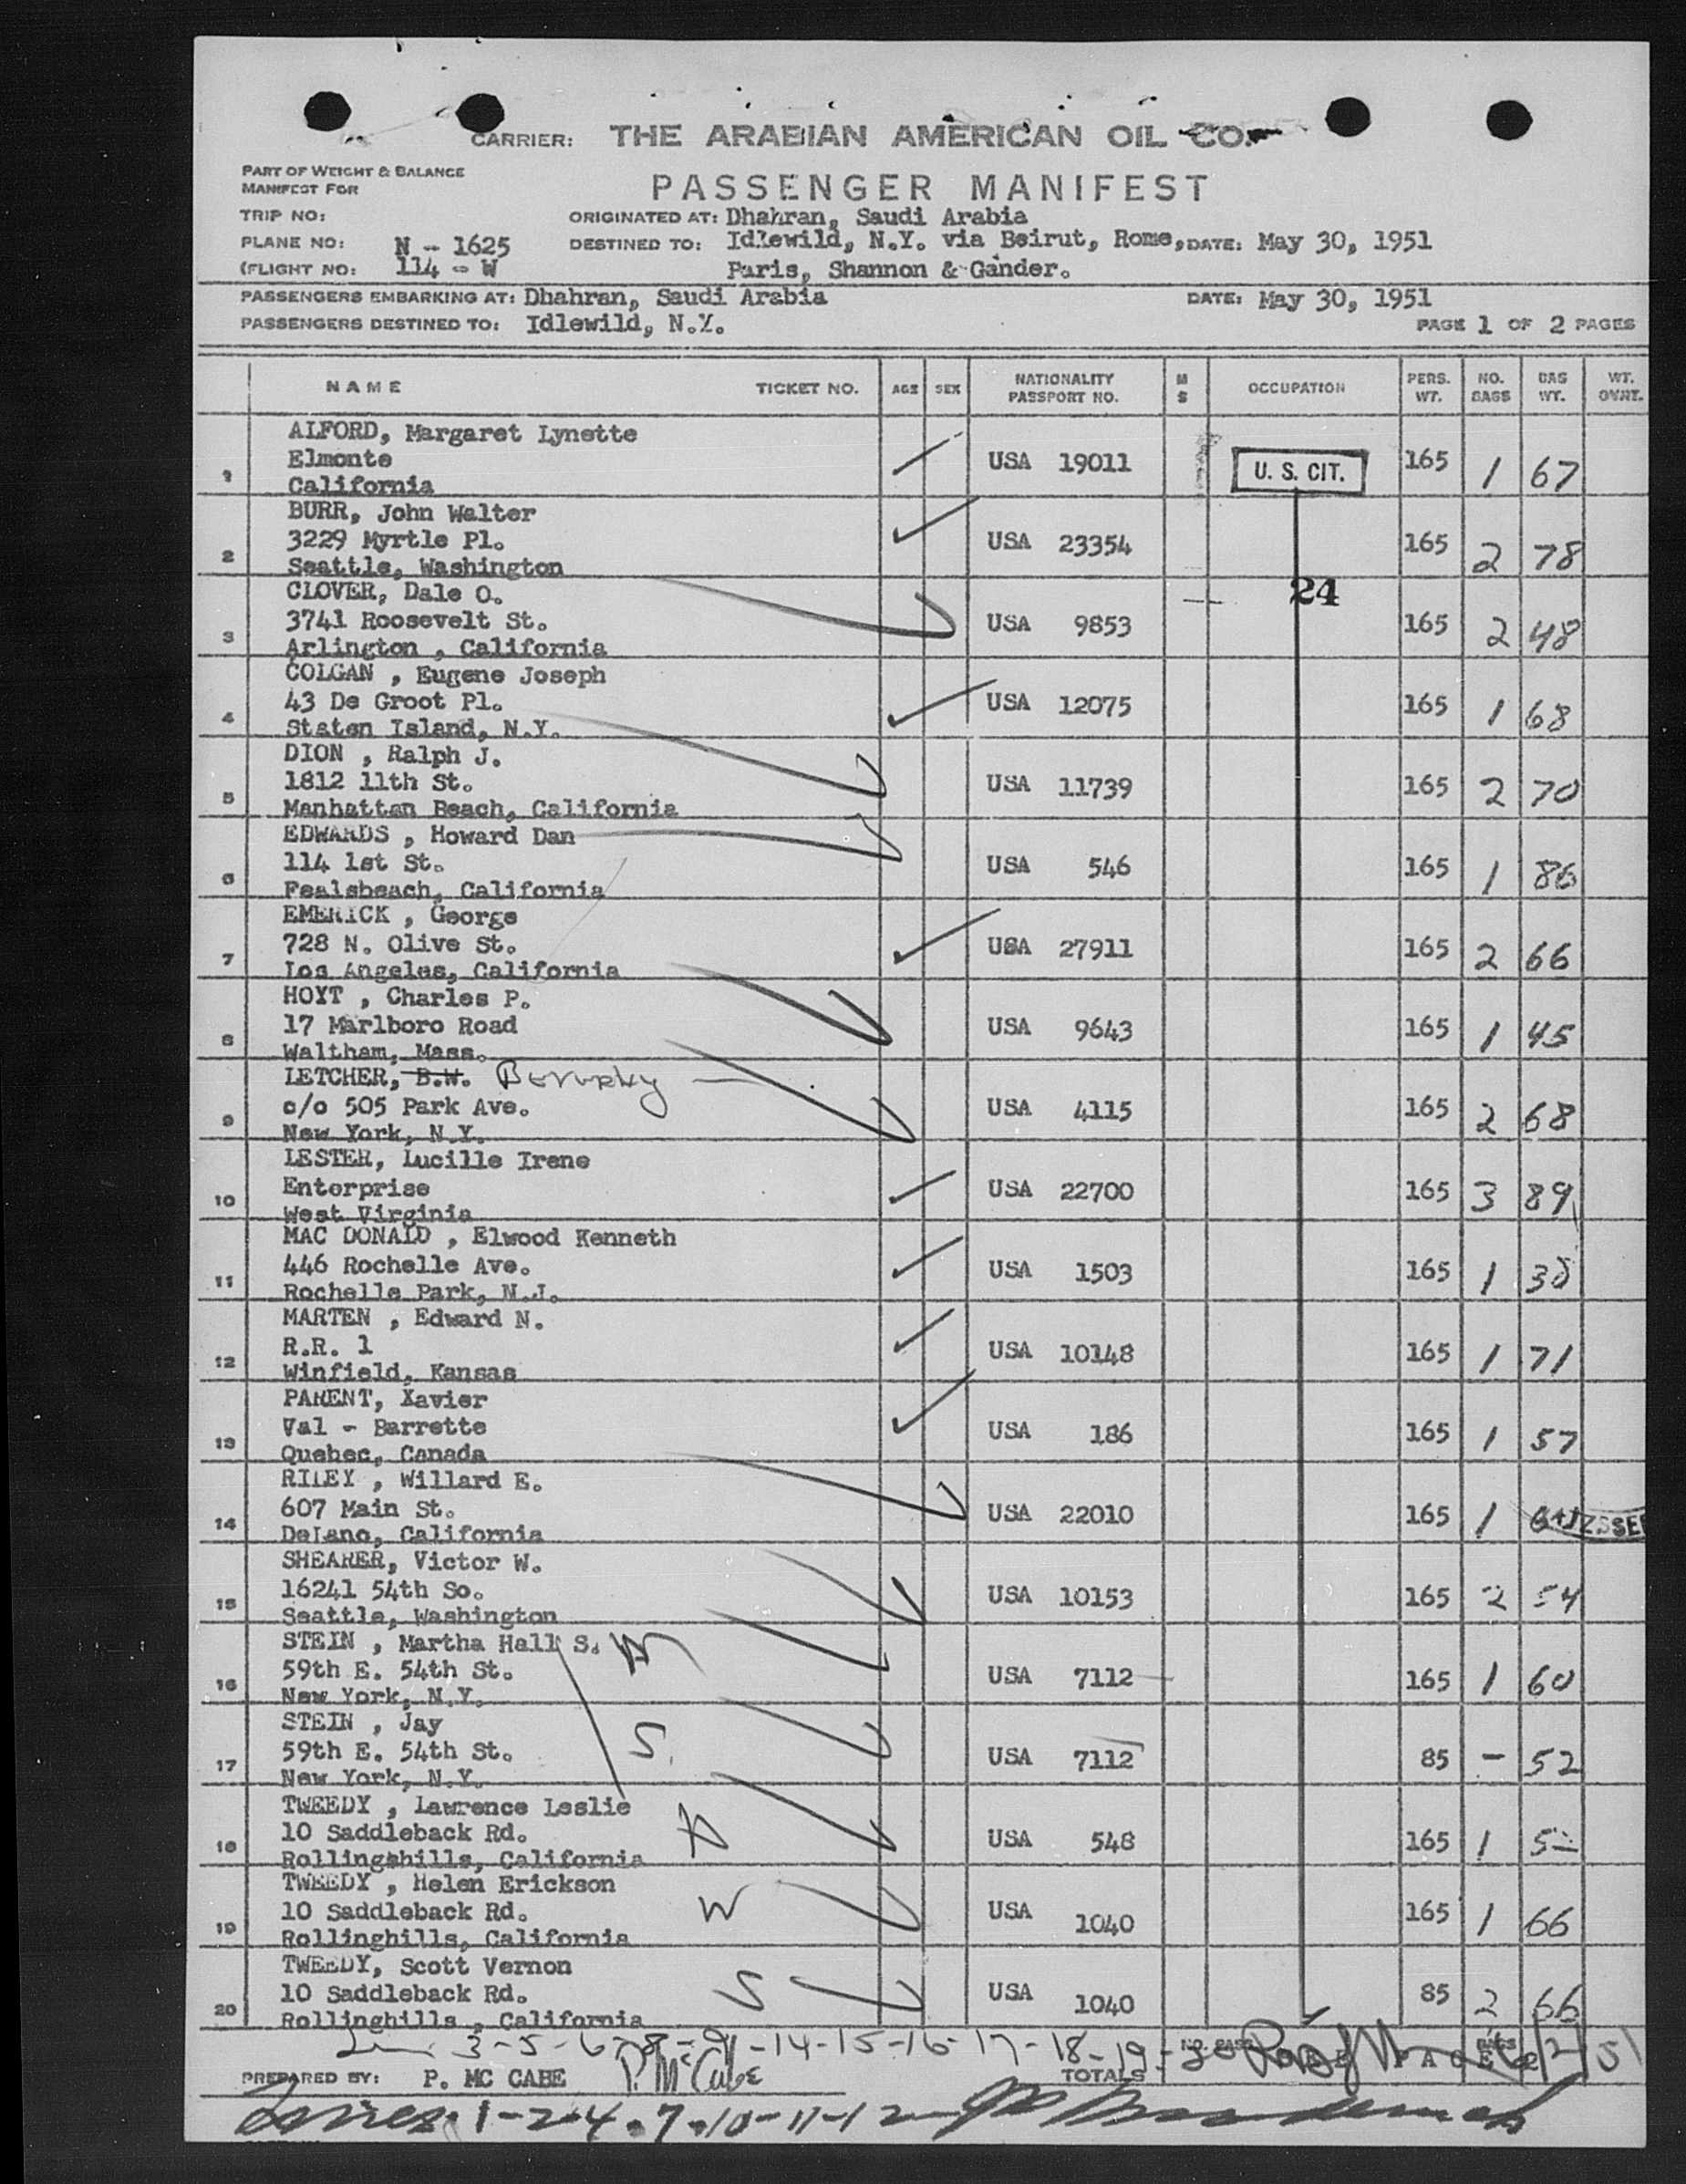 CARRIER: THE ARABIAN AMERICAN OIL CO.
PART OF WEIGHT & BALANCE
MANIFEST FOR
PASSENGER MANIFEST
TRIP NO:
ORIGINATED AT: Dhahran, Saudi Arabia
PLANE NO: N - 1625
DESTINED TO: Idlewild, N.Y. via Beirut, Rome, DATE: May 30, 1951
(FLIGHT NO: 114 - W
Paris, Shannon & Gander.
PASSENGERS EMBARKING AT: Dhahran, Saudi Arabia DATE: May 30, 1951
PASSENGERS DESTINED TO: Idlewild, N.Y. PAGE 1 OF 2 PAGES
NAME TICKET NO. AGE SEX NATIONALITY PASSPORT NO. M S OCCUPATION PERS. WT. NO. BAGS BAG WT. WT. OVRT.
ALFORD, Margaret Lynette
Elmonte
1 California USA 19011 U. S. CIT. 165 1 67
BURR, John Walter
3229 Myrtle Pl.
2 Seattle, Washington USA 23354 165 2 78
24
CLOVER, Dale O.
3741 Roosevelt St.
3 Arlington , California USA 9853 165 2 48
COLGAN , Eugene Joseph
43 De Groot Pl.
4 Staten Island, N.Y. USA 12075 165 1 68
DION , Ralph J.
1812 11th St.
5 Manhattan Beach, California USA 11739 165 2 70
EDWARDS , Howard Dan
114 1st St.
6 Fealsbeach, California USA 546 165 1 86
EMERICK , George
728 N. Olive St.
7 Los Angeles, California USA 27911 165 2 66
HOYT , Charles P.
17 Marlboro Road
8 Waltham, Mass. USA 9643 165 1 45
LETCHER, B.W.
c/o 505 Park Ave.
9 New York, N.Y. USA 4115 165 2 68
LESTER, Lucille Irene
Enterprise
10 West Virginia USA 22700 165 3 89
MAC DONALD , Elwood Kenneth
446 Rochelle Ave.
11 Rochelle Park, N.J. USA 1503 165 1 38
MARTEN , Edward N.
R.R. 1
12 Winfield, Kansas USA 10148 165 1 71
PARENT, Xavier
Val - Barrette
13 Quebec, Canada USA 186 165 1 57
RILEY , Willard E.
607 Main St.
14 DeLano, California USA 22010 165 1
SHEARER, Victor W.
16241 54th So.
15 Seattle, Washington USA 10153 165 2 54
STEIN , Martha Hall S. W
59th E. 54th St.
16 New York, N.Y. USA 7112 165 1 60
STEIN , Jay S.
59th E. 54th St.
17 New York, N.Y. USA 7112 85 - 52
TWEEDY , Lawrence Leslie H
10 Saddleback Rd.
18 Rollingshills, California USA 548 165 1
TWEEDY , Helen Erickson W
10 Saddleback Rd.
19 Rollinghills, California USA 1040 165 1 66
TWEEDY, Scott Vernon S
10 Saddleback Rd.
20 Rollinghills , California USA 1040 85 2 66
3-5-6-8-9-14-15-16-17-18-19-20
PREPARED BY: P. MC CABE P. McCabe TOTALS
1-2-4-7-10-11-12